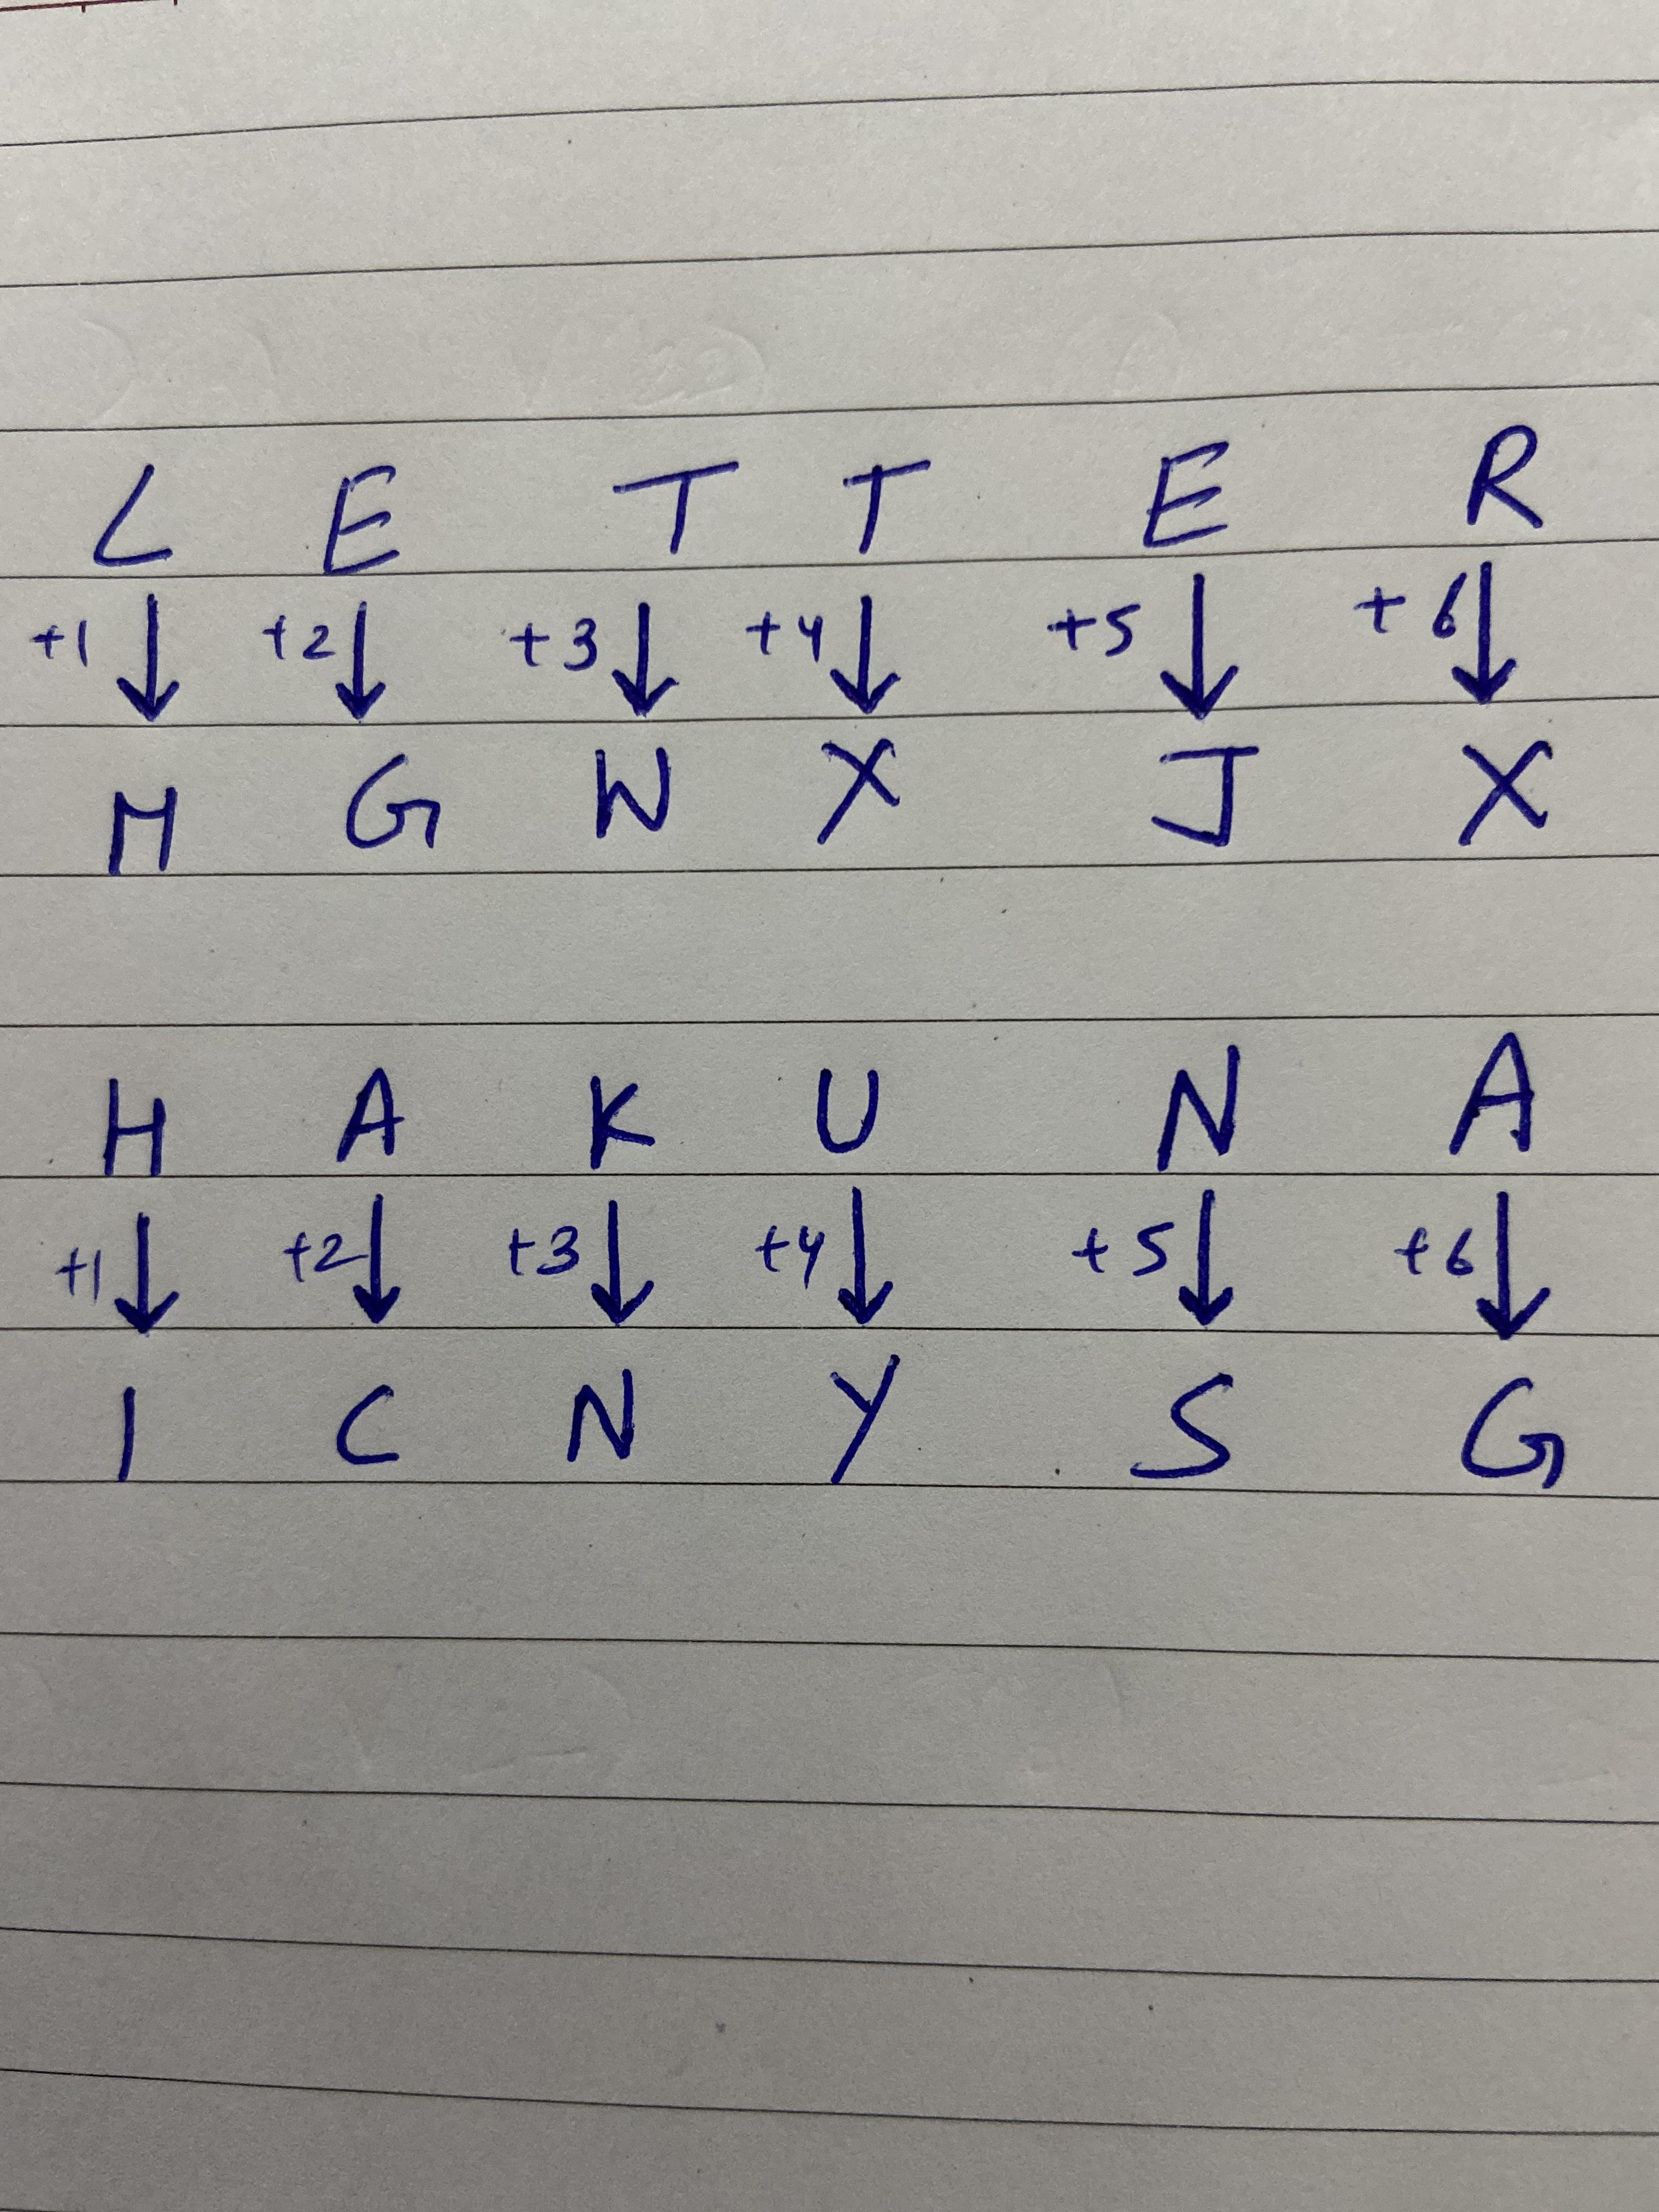 L E T T E R
+1 ↓ +2 ↓ +3 ↓ +4 ↓ +5 ↓ +6 ↓
M G W X J X
H A K U N A
+1 ↓ +2 ↓ +3 ↓ +4 ↓ +5 ↓ +6 ↓
I C N Y S G